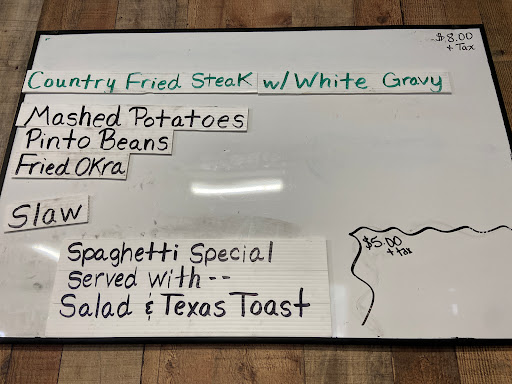 $8.00
+ Tax
Country Fried Steak w/White Gravy
Mashed Potatoes
Pinto Beans
Fried Okra
Slaw
Spaghetti Special
Served with --
Salad & Texas Toast
$5.00
+ tax